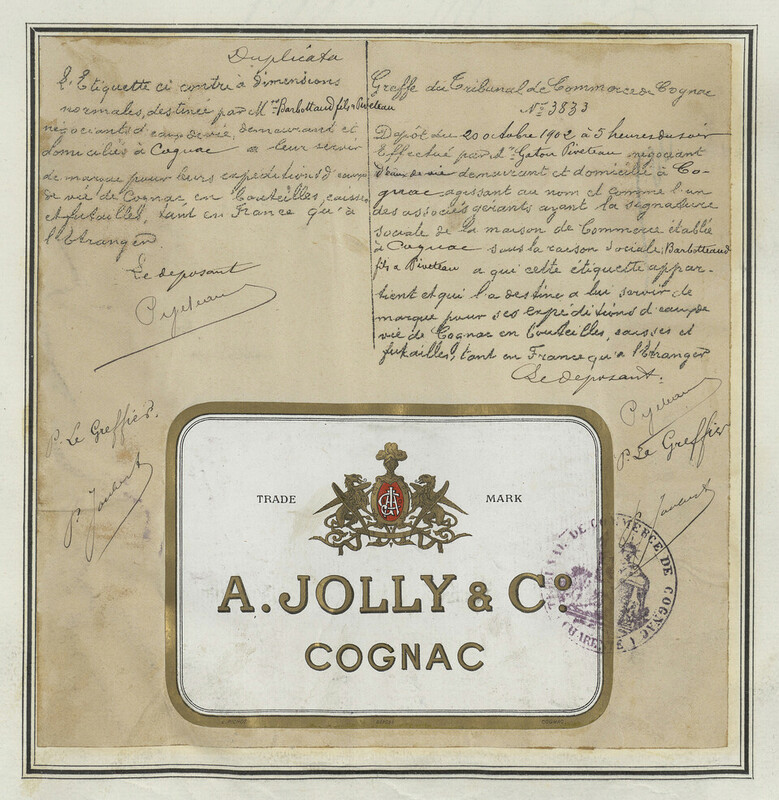 Duplicata
L'Etiquette ci contre à dimensions
normales, destinée par MM. Barbottaud fils & Piveteau
négociants d'eaux de vie, demeurant et
domiciliés à Cognac a leur servir
de marque pour leurs expéditions d'eaux
de vie de Cognac en bouteilles, caisses
et futailles, tant en France qu'à
l'Etranger.
Le deposant
Piveteau
P. Le Greffier.
P. Joubert
Greffe du Tribunal de Commerce de Cognac
No. 3833
Dépôt du 20 octobre 1902 à 5 heures du soir
Effectué par M. Gaton Piveteau négociant
d'eau de vie demeurant et domicilié à Co-
gnac agissant au nom et comme l'un
des associés gérants ayant la signature
sociale de la maison de Commerce établie
à Cognac sous la raison sociale; Barbotteaud
fils & Piveteau a qui cette étiquette appar-
tient et qui l'a destine a lui servir de
marque pour ses expéditions d'eaux de
vie de Cognac en bouteilles, caisses et
futailles, tant en France qu'a l'Etranger
Le deposant.
Piveteau
P. Le Greffier
P. Joubert
TRADE MARK
A. JOLLY & Co.
COGNAC
TRIBUNAL DE COMMERCE DE COGNAC
(CHARENTE)